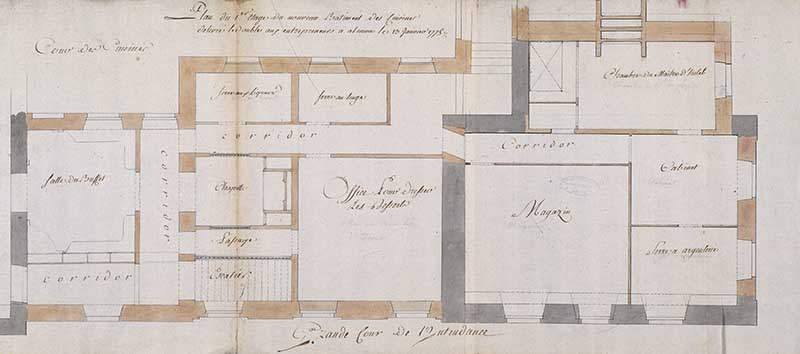 Plan du 1er Etage du nouveau Batiment des Cuisines
delivré les doubles aux entrepreneurs a alencon le 13 Janvier 1775
Cour des Cuisines
Chambre du Maitre d'hotel
Serre au linge
corridor
corridor
Cabinet
Salle du Buffet
corridor
Chapelle
Office pour dresser
Les desserts
Magazin
Passage
Serre a argenterie
Escalier
corridor
Grande Cour de l'Intendance